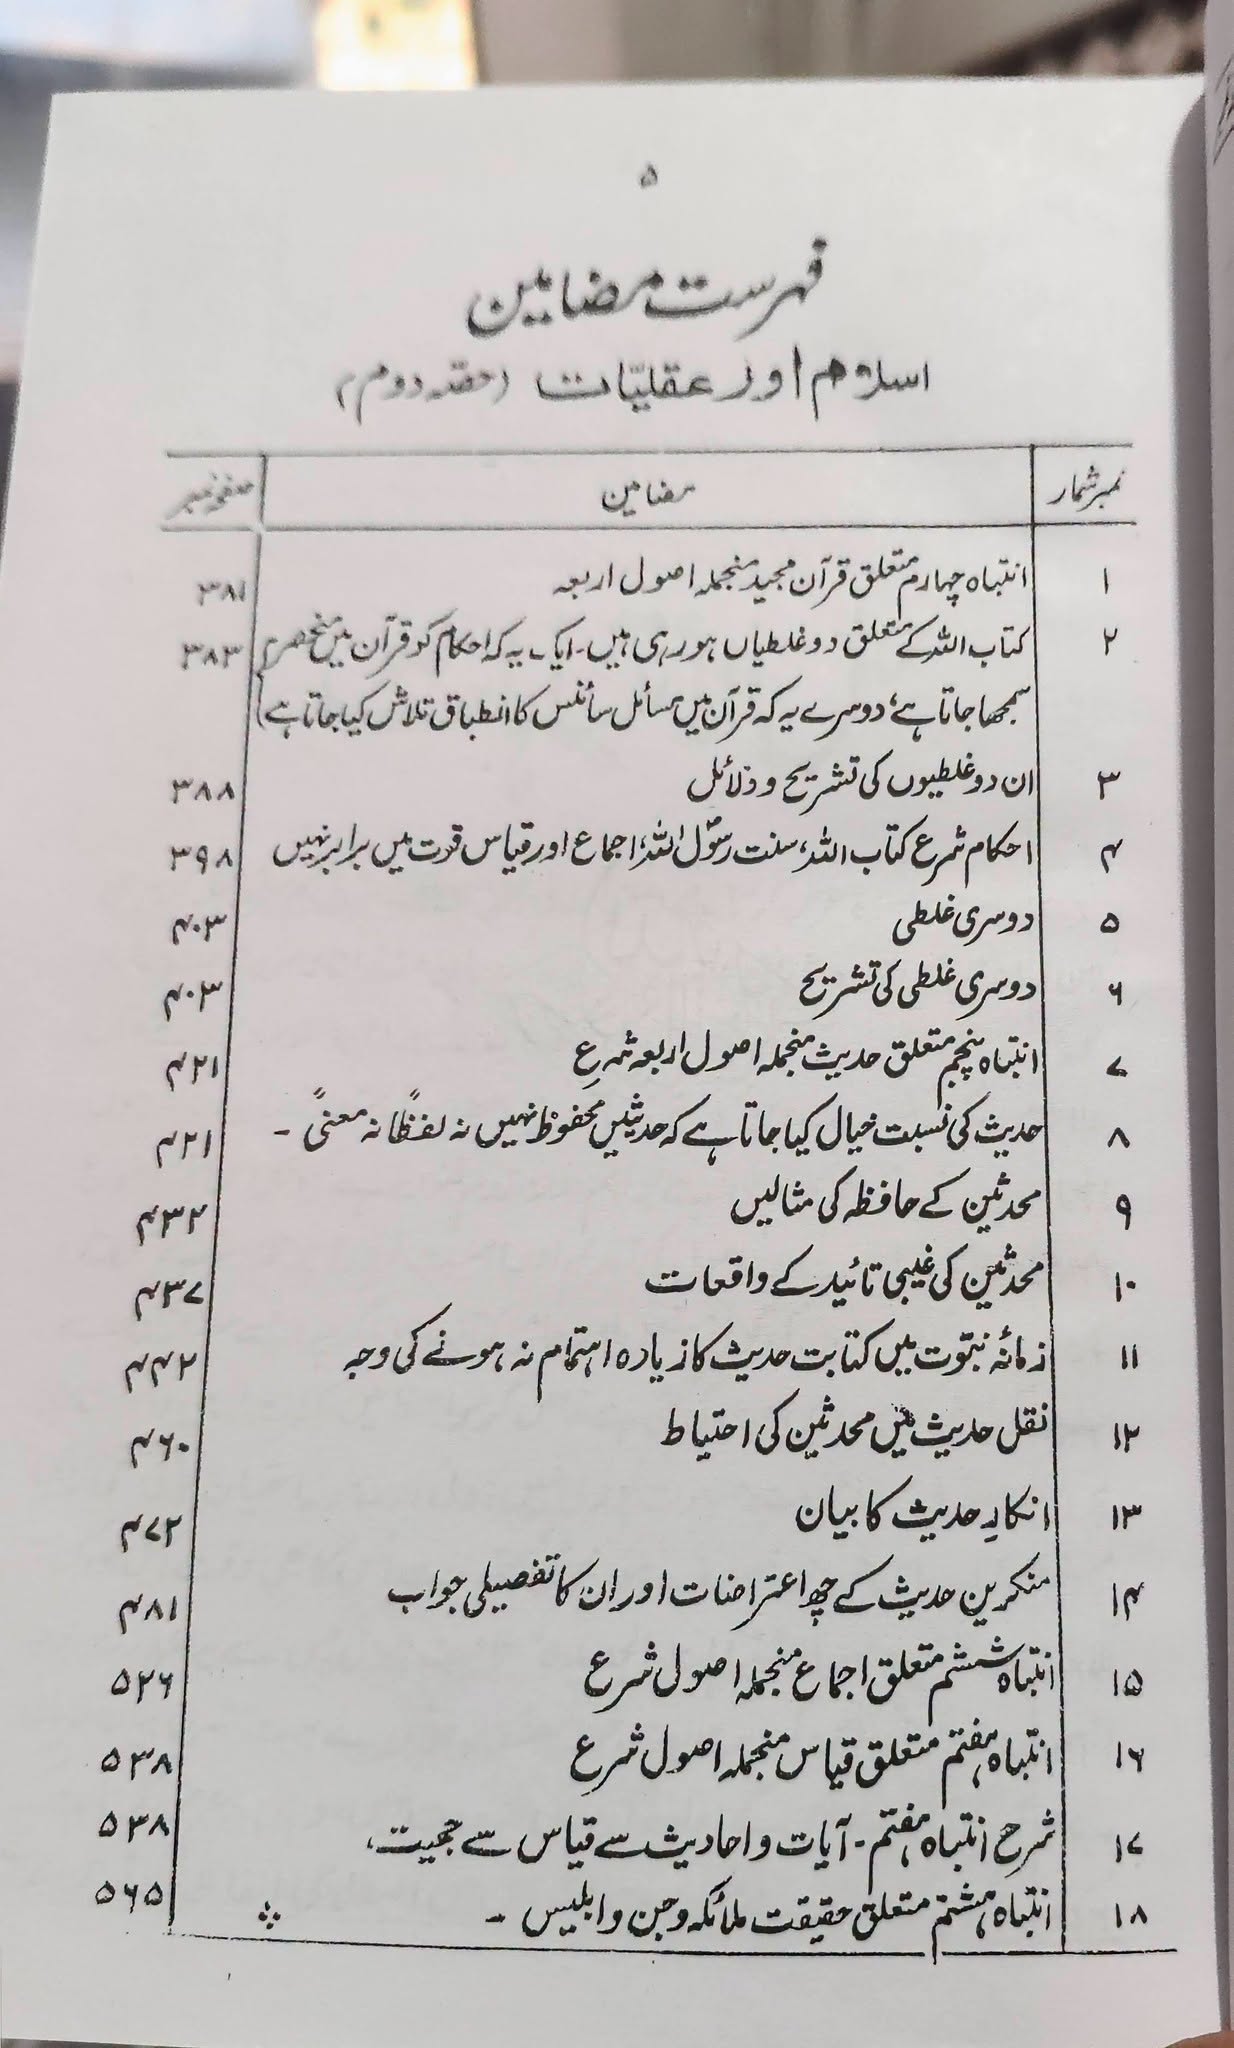 ۵
فہرست مضامین
اسلام اور عقلیّات (حصہ دوم)
نمبر شمار مضامین صفحہ نمبر
۱ انتباہ چہارم متعلق قرآن مجید منجملہ اصول اربعہ ۳۸۱
۲ کتاب اللہ کے متعلق دو غلطیاں ہو رہی ہیں۔ ایک یہ کہ احکام کو قرآن میں منحصر ۳۸۳
سمجھا جاتا ہے، دوسرے یہ کہ قرآن میں مسائل سائنس کا انطباق تلاش کیا جاتا ہے)
۳ ان دو غلطیوں کی تشریح و دلائل ۳۸۸
۴ احکام شرع کتاب اللہ، سنت رسولؐ اللہ، اجماع اور قیاس قوت میں برابر نہیں ۳۹۸
۵ دوسری غلطی ۴۰۳
۶ دوسری غلطی کی تشریح ۴۰۳
۷ انتباہ پنجم متعلق حدیث منجملہ اصول اربعہ شرعِ ۴۲۱
۸ حدیث کی نسبت خیال کیا جاتا ہے کہ حدیثیں محفوظ نہیں نہ لفظاً نہ معنیً ۔ ۴۲۱
۹ محدثین کے حافظہ کی مثالیں ۴۳۲
۱۰ محدثین کی غیبی تائید کے واقعات ۴۳۷
۱۱ زمانہ نبوّت میں کتابت حدیث کا زیادہ اہتمام نہ ہونے کی وجہ ۴۴۲
۱۲ نقل حدیث میں محدثین کی احتیاط ۴۶۰
۱۳ انکارِ حدیث کا بیان ۴۷۲
۱۴ منکرین حدیث کے چھ اعتراضات اور ان کا تفصیلی جواب ۴۸۱
۱۵ انتباہ ششم متعلق اجماع منجملہ اصول شرع ۵۲۶
۱۶ انتباہ ہفتم متعلق قیاس منجملہ اصول شرع ۵۳۸
۱۷ شرح انتباہ ہفتم ۔ آیات و احادیث سے قیاس سے حجیت، ۵۳۸
۱۸ انتباہ ہشتم متعلق حقیقت ملائکہ و جن و ابلیس ۔ ۵۶۵